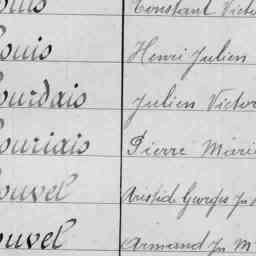 ouis Constant Victo
ouis Henri Julien
ourdais Julien Victor
ouriais Pierre Marie
ouvel Aristide Georges Jn
ouvel Armand Jn M